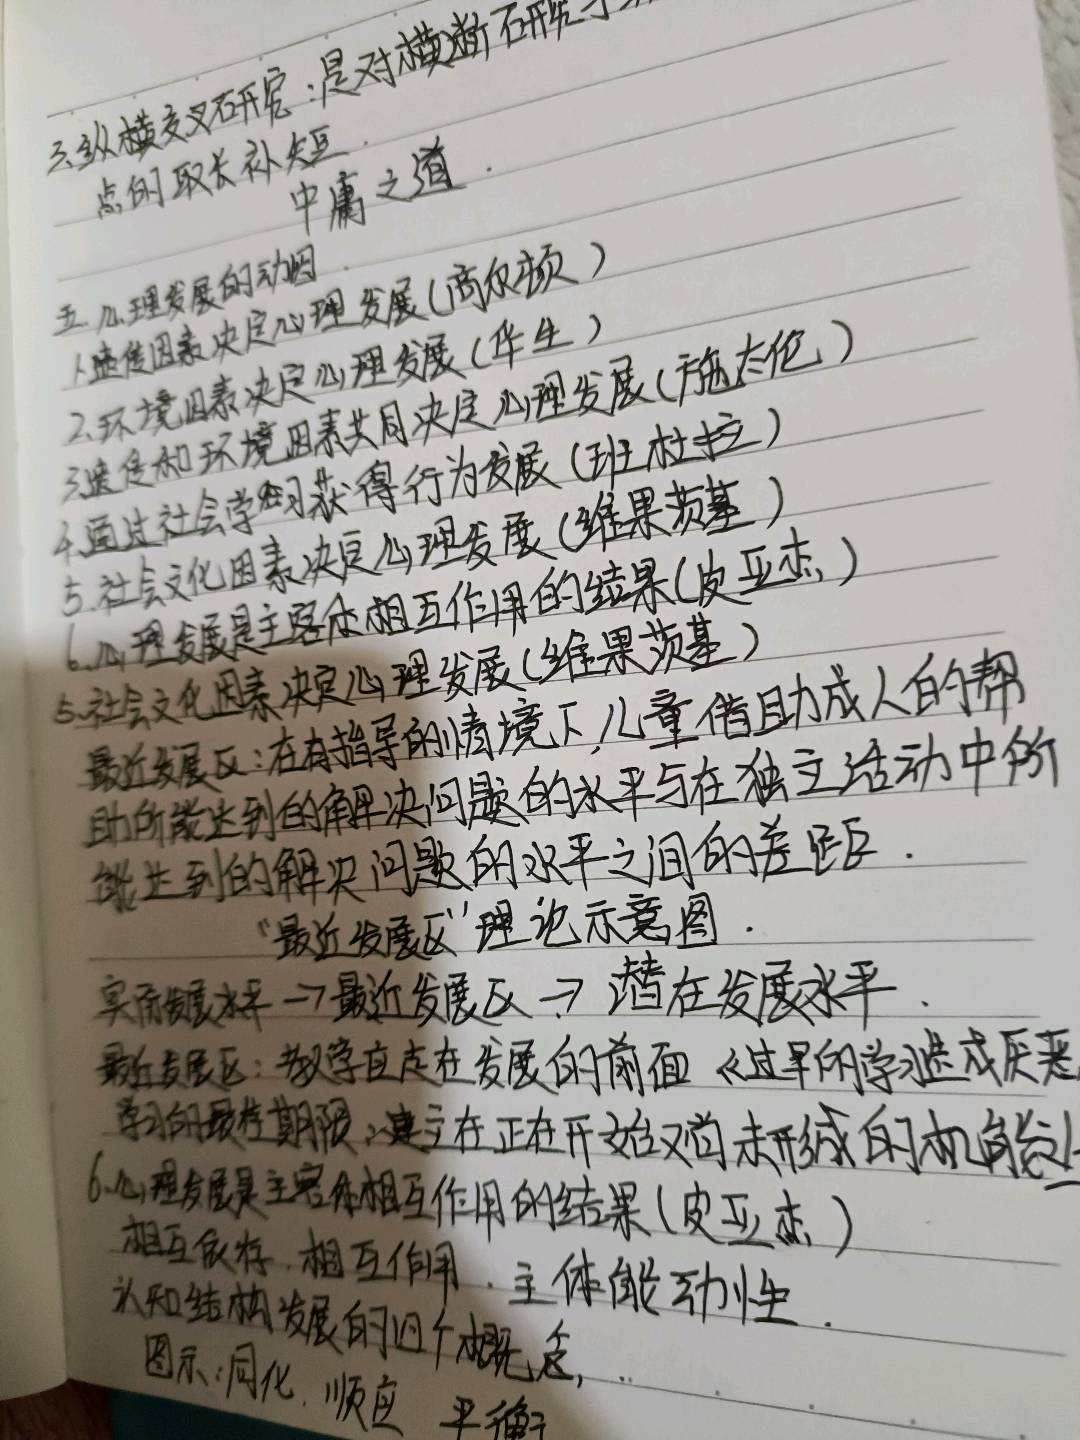 3.纵横交叉研究:是对横断研究
点的取长补短.
中庸之道.
五.心理发展的动因.
1.遗传因素决定心理发展(高尔顿)
2.环境因素决定心理发展(华生)
3.遗传和环境因素共同决定心理发展(施太伦)
4.通过社会学习获得行为发展(班杜拉)
5.社会文化因素决定心理发展(维果茨基)
6.心理发展是主客体相互作用的结果(皮亚杰)
5.社会文化因素决定心理发展(维果茨基)
最近发展区:在有指导的情境下,儿童借助成人的帮
助所能达到的解决问题的水平与在独立活动中所
能达到的解决问题的水平之间的差距.
“最近发展区”理论示意图.
实际发展水平→最近发展区→潜在发展水平.
最近发展区:教学应走在发展的前面《过早的学习造成厌恶
学习的最佳期限:建立在正在开始又尚未形成的机能之上
6.心理发展是主客体相互作用的结果(皮亚杰)
相互依存.相互作用.主体能动性.
认知结构发展的四个概念,
图示:同化.顺应 平衡